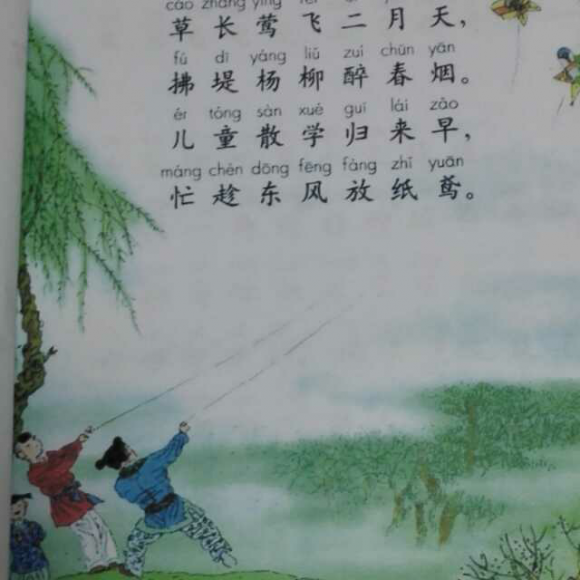 cǎo zhǎng yīng
草长莺飞二月天，
fú dī yáng liǔ zuì chūn yān
拂堤杨柳醉春烟。
ér tóng sàn xué guī lái zǎo
儿童散学归来早，
máng chèn dōng fēng fàng zhǐ yuān
忙趁东风放纸鸢。